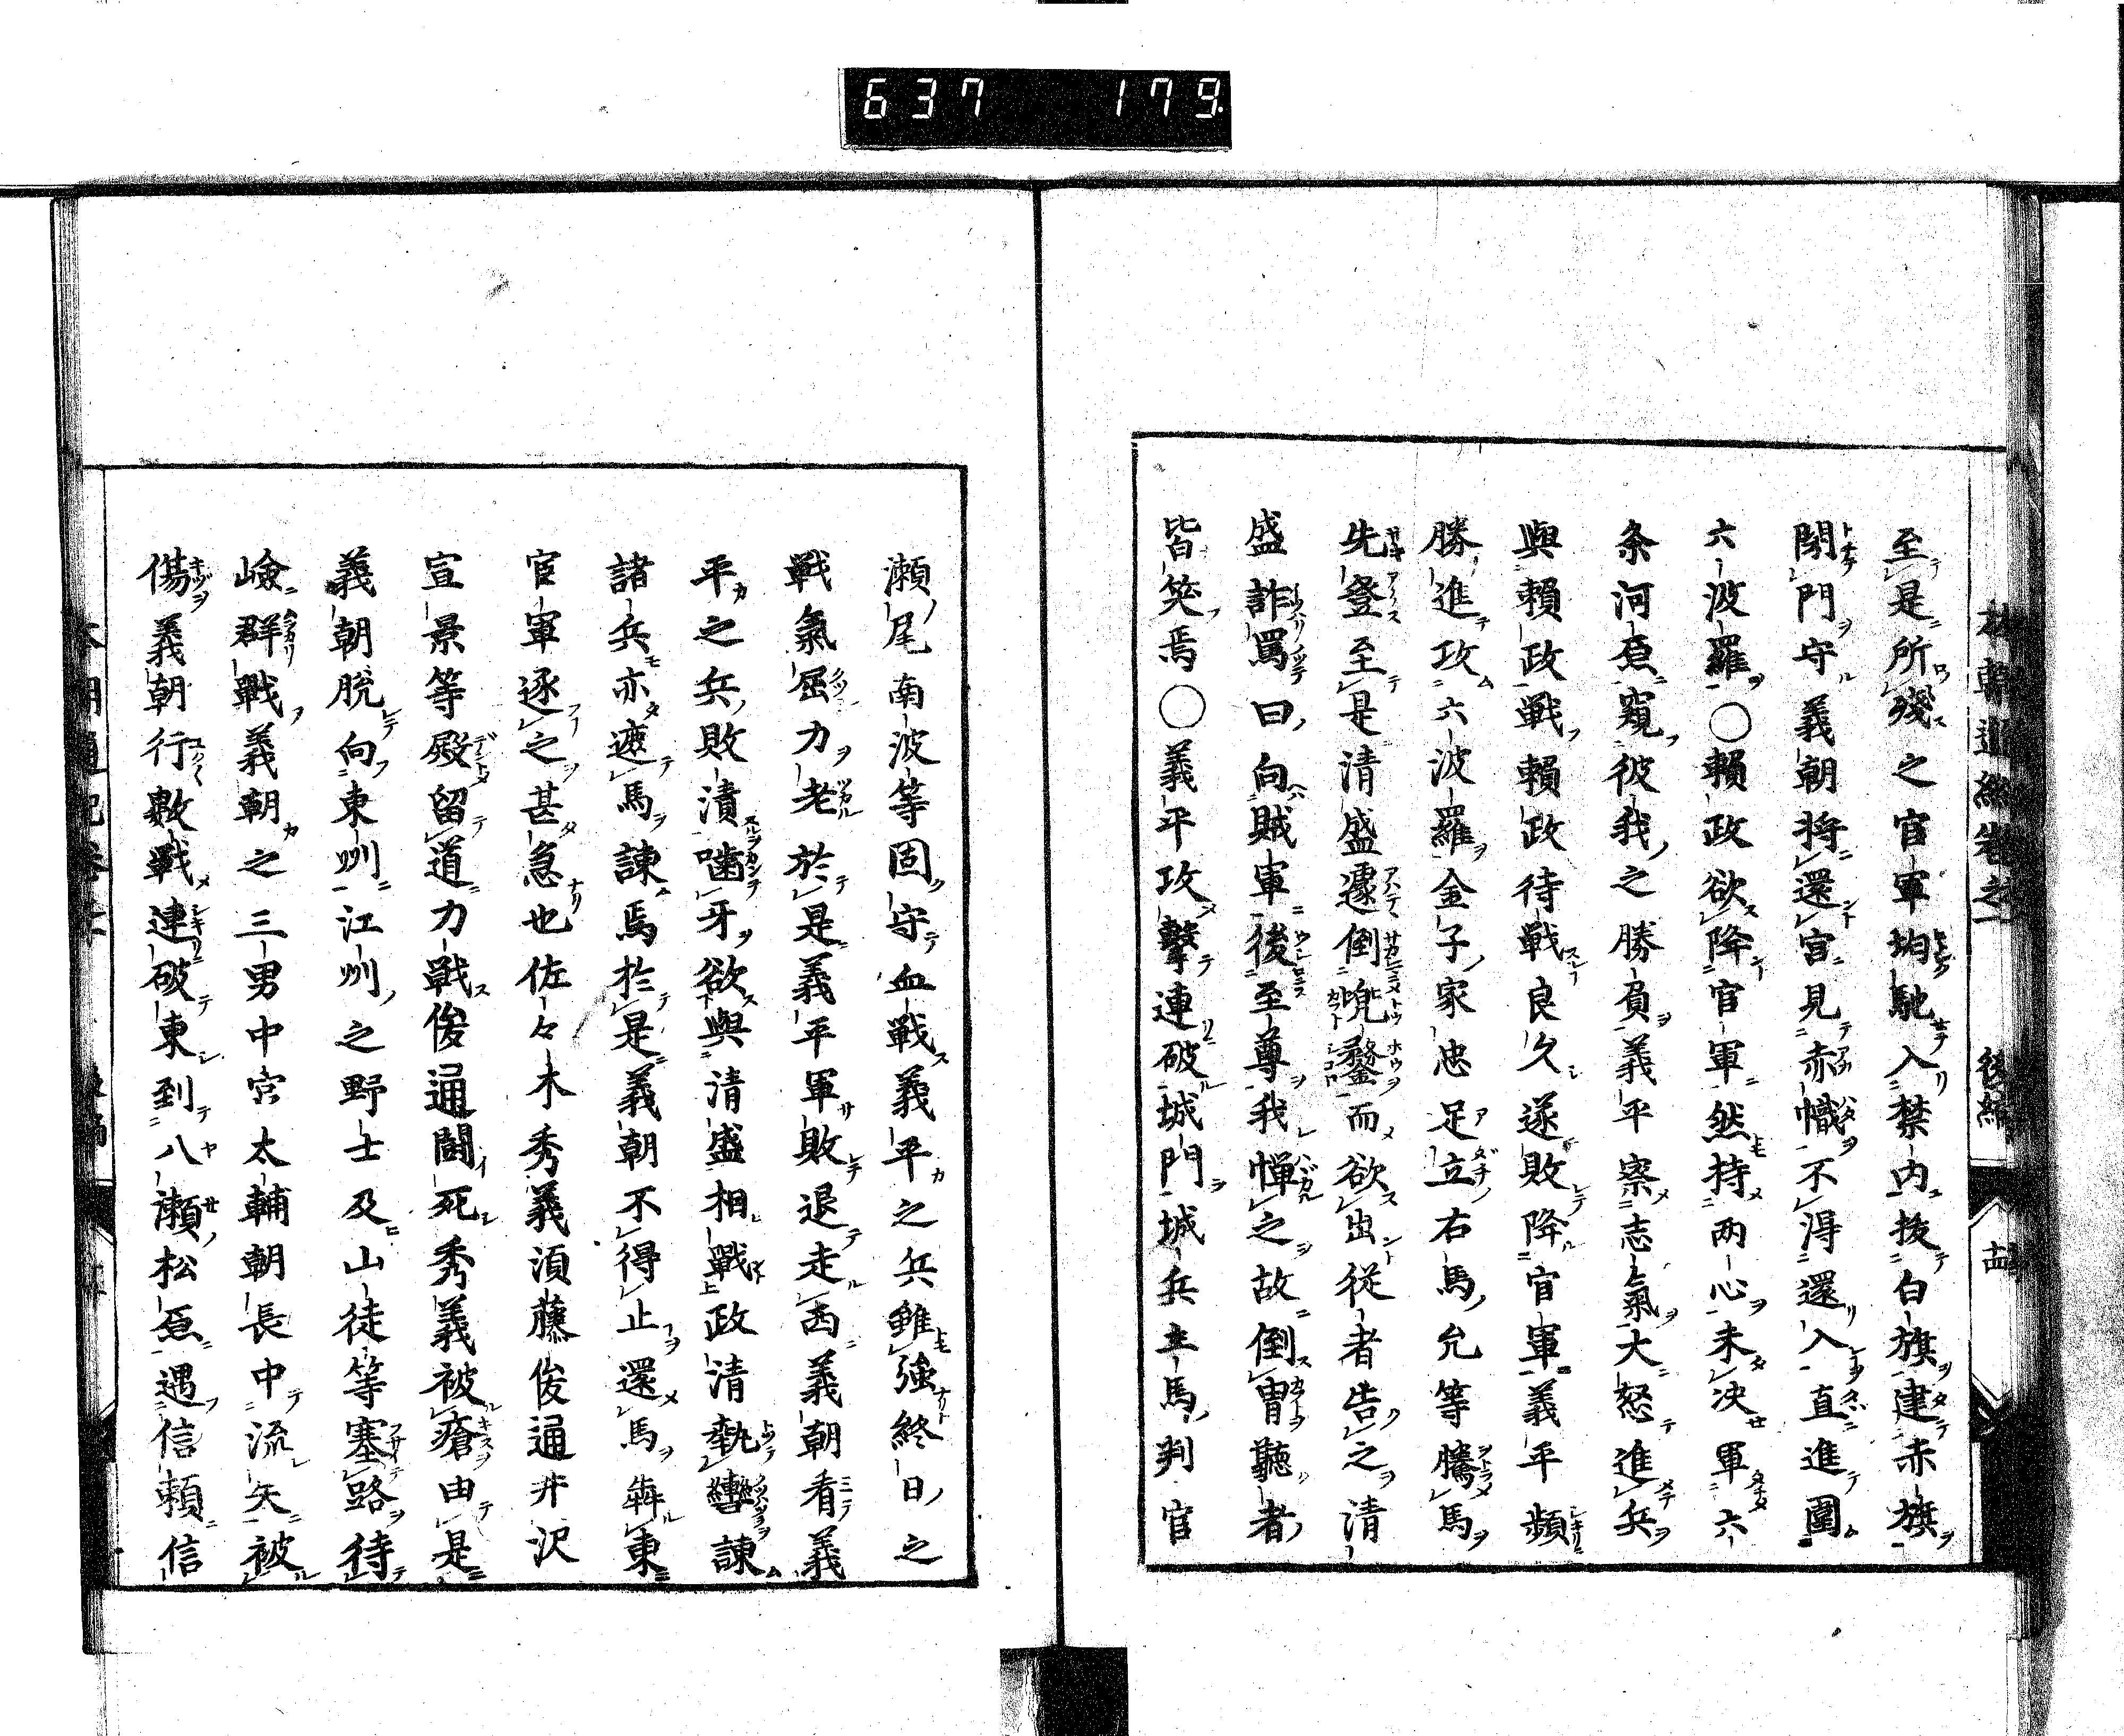 637 179
至是所殘之官軍均馳入禁内抜白旗建赤旗
閉門守義朝将還宮見赤幟不得還入直進圍
六波羅○頼政欲降官軍然持两心未决軍六
条河原窺彼我之勝負義平察志氣大怒進兵
與頼政戦頼政待戦良久遂敗降官軍義平頻
勝進攻六波羅金子家忠足立右馬允等騰馬
先登至是清盛遽倒兜鍪而欲出従者告之清
盛詐罵曰向賊軍後至尊我憚之故倒冑聽者
皆笑焉○義平攻撃連破城門城兵主馬判官
瀬尾南波等固守血戦義平之兵雖強終日之
戰氣屈力老於是義平軍敗退走西義朝看義
平之兵敗潰嚙牙欲與清盛相戰政清執轡諌
諸兵亦遮馬諌焉於是義朝不得止還馬犇東
官軍逐之甚急也佐々木秀義須藤俊通井沢
宣景等殿留道力戰俊通闘死秀義被瘡由是
義朝脱向東州江州之野士及山徒等塞路待
嶮群戰義朝之三男中宮太輔朝長中流矢被
傷義朝行數戦連破東到八瀬松原遇信頼信